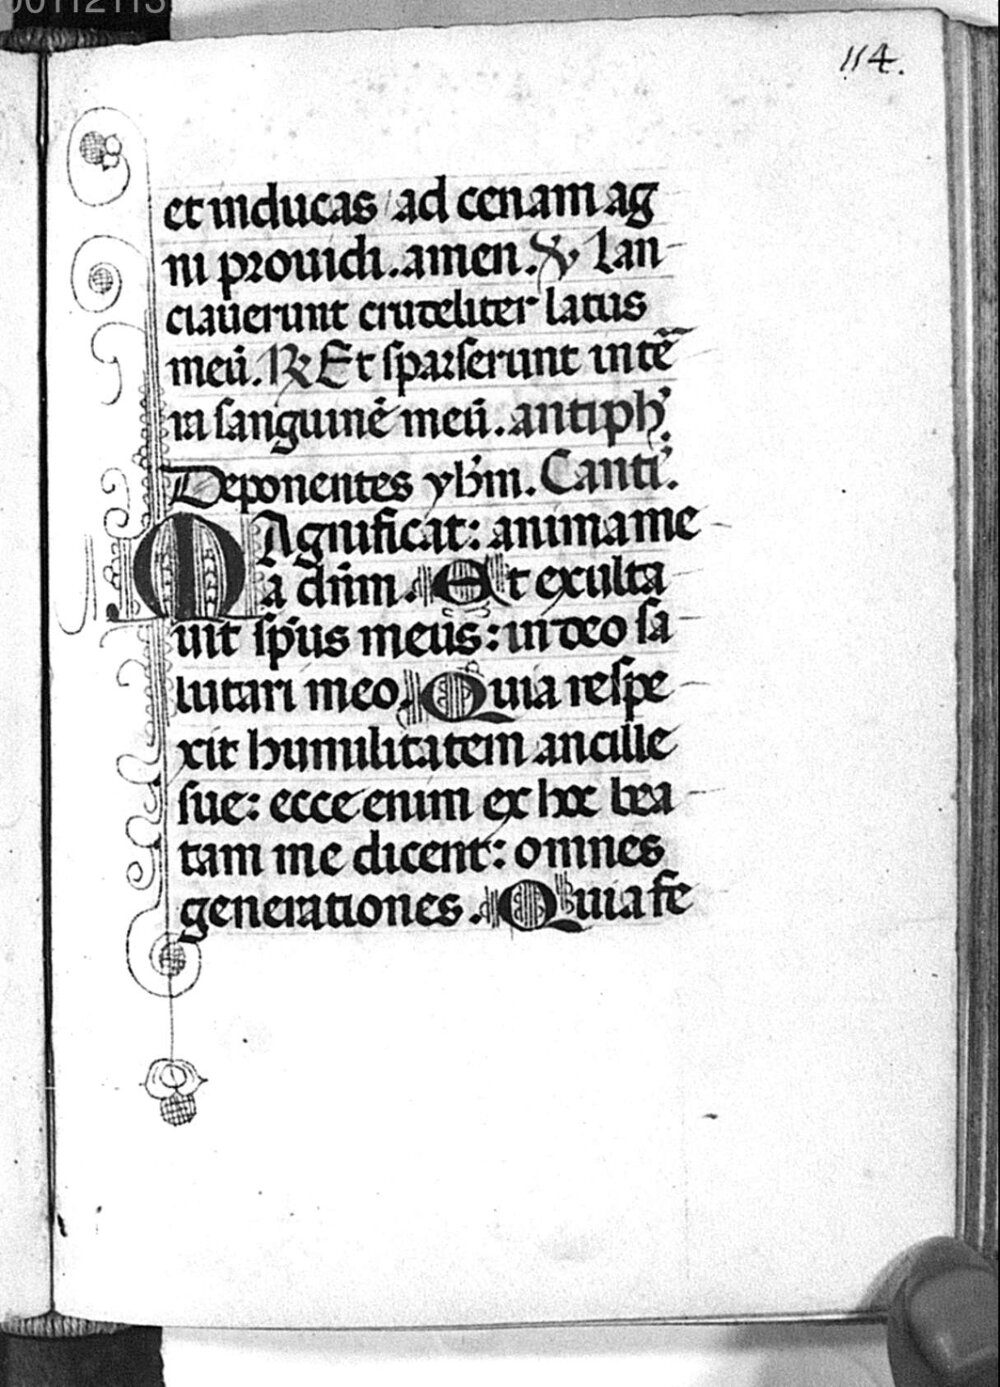 114.
et inducas ad cenam ag
ni prouidi. amen. ℣ Lan
ciauerunt crudeliter latus
meū. ℟ Et sparserunt in te
ra sanguinē meū. antiph'.
Deponentes ybīn. Canti.
MAgnificat: anima me
a dnm. Et exulta
uit sp̄us meus: in deo sa
lutari meo. Quia respe
xit humilitatem ancille
sue: ecce enim ex hoc bea
tam me dicent: omnes
generationes. Quia fe